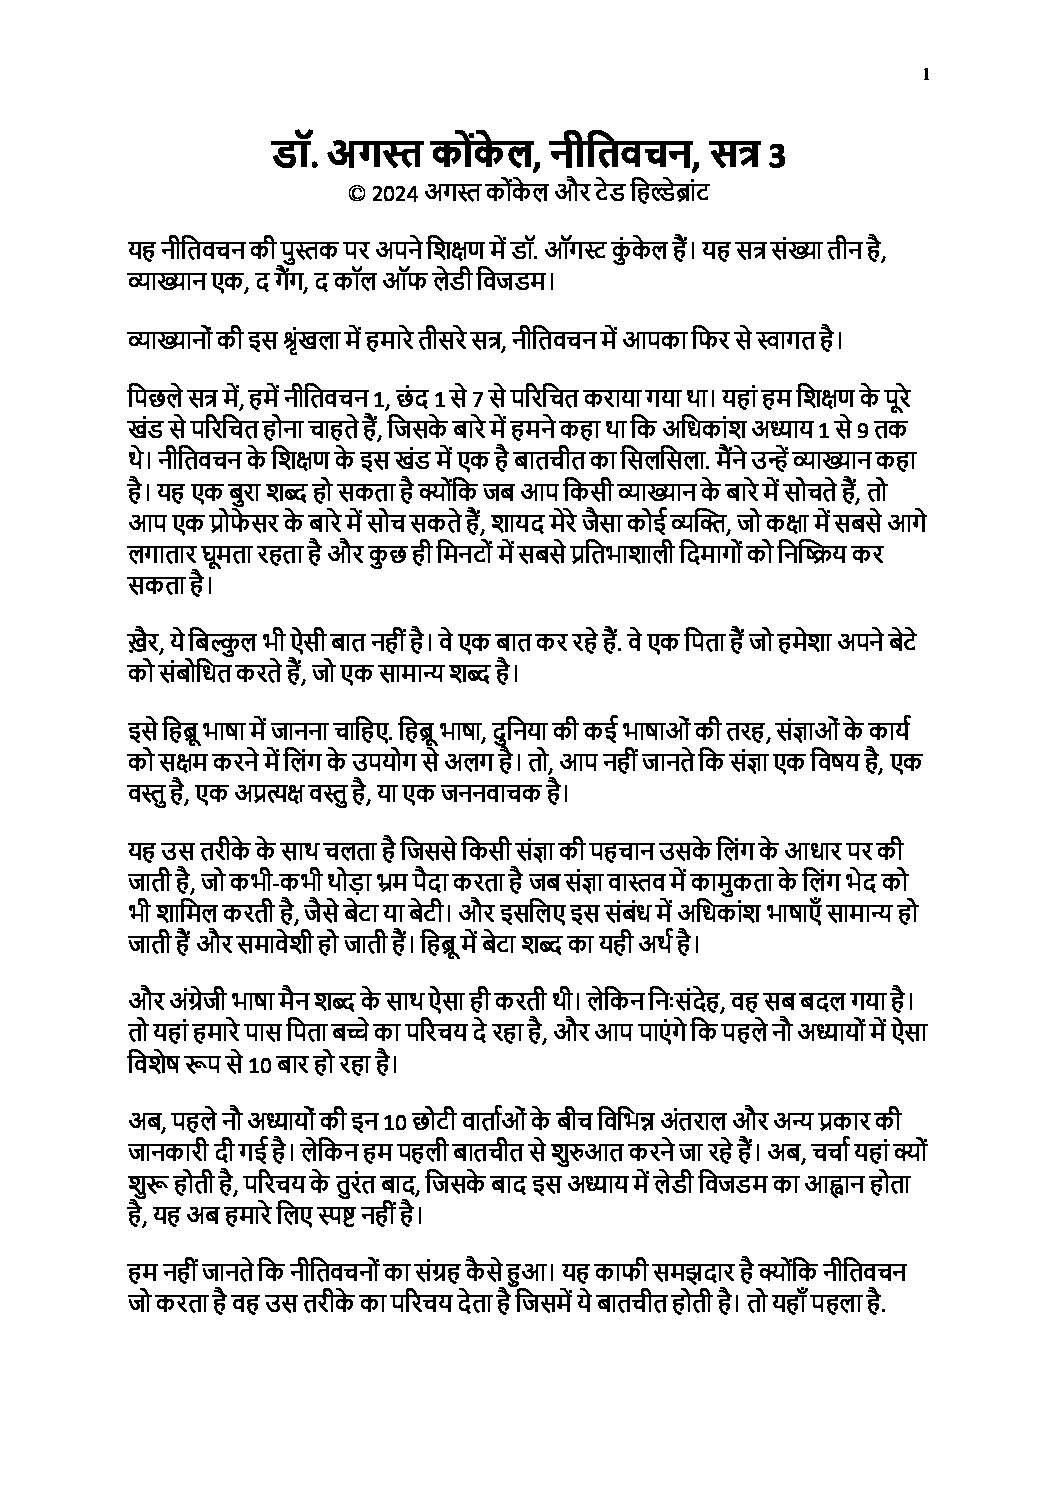 1
डॉ. अगस्त कोंकेल, नीतिवचन, सत्र 3
© 2024 अगस्त कोंकेल और टेड हिल्डेब्रांट
यह नीतिवचन की पुस्तक पर अपने शिक्षण में डॉ. ऑगस्ट कुंकेल हैं। यह सत्र संख्या तीन है,
व्याख्यान एक, द गैंग, द कॉल ऑफ लेडी विजडम।
व्याख्यानों की इस श्रृंखला में हमारे तीसरे सत्र, नीतिवचन में आपका फिर से स्वागत है।
पिछले सत्र में, हमें नीतिवचन 1, छंद 1 से 7 से परिचित कराया गया था। यहां हम शिक्षण के पूरे
खंड से परिचित होना चाहते हैं, जिसके बारे में हमने कहा था कि अधिकांश अध्याय 1 से 9 तक
थे। नीतिवचन के शिक्षण के इस खंड में एक है बातचीत का सिलसिला. मैंने उन्हें व्याख्यान कहा
है। यह एक बुरा शब्द हो सकता है क्योंकि जब आप किसी व्याख्यान के बारे में सोचते हैं, तो
आप एक प्रोफेसर के बारे में सोच सकते हैं, शायद मेरे जैसा कोई व्यक्ति, जो कक्षा में सबसे आगे
लगातार घूमता रहता है और कुछ ही मिनटों में सबसे प्रतिभाशाली दिमागों को निष्क्रिय कर
सकता है।
ख़ैर, ये बिल्कुल भी ऐसी बात नहीं है। वे एक बात कर रहे हैं. वे एक पिता हैं जो हमेशा अपने बेटे
को संबोधित करते हैं, जो एक सामान्य शब्द है।
इसे हिब्रू भाषा में जानना चाहिए. हिब्रू भाषा, दुनिया की कई भाषाओं की तरह, संज्ञाओं के कार्य
को सक्षम करने में लिंग के उपयोग से अलग है। तो, आप नहीं जानते कि संज्ञा एक विषय है, एक
वस्तु है, एक अप्रत्यक्ष वस्तु है, या एक जननवाचक है।
यह उस तरीके के साथ चलता है जिससे किसी संज्ञा की पहचान उसके लिंग के आधार पर की
जाती है, जो कभी-कभी थोड़ा भ्रम पैदा करता है जब संज्ञा वास्तव में कामुकता के लिंग भेद को
भी शामिल करती है, जैसे बेटा या बेटी। और इसलिए इस संबंध में अधिकांश भाषाएँ सामान्य हो
जाती हैं और समावेशी हो जाती हैं। हिब्रू में बेटा शब्द का यही अर्थ है।
और अंग्रेजी भाषा मैन शब्द के साथ ऐसा ही करती थी। लेकिन निःसंदेह, वह सब बदल गया है।
तो यहां हमारे पास पिता बच्चे का परिचय दे रहा है, और आप पाएंगे कि पहले नौ अध्यायों में ऐसा
विशेष रूप से 10 बार हो रहा है।
अब, पहले नौ अध्यायों की इन 10 छोटी वार्ताओं के बीच विभिन्न अंतराल और अन्य प्रकार की
जानकारी दी गई है। लेकिन हम पहली बातचीत से शुरुआत करने जा रहे हैं। अब, चर्चा यहां क्यों
शुरू होती है, परिचय के तुरंत बाद, जिसके बाद इस अध्याय में लेडी विजडम का आह्वान होता
है, यह अब हमारे लिए स्पष्ट नहीं है।
हम नहीं जानते कि नीतिवचनों का संग्रह कैसे हुआ। यह काफी समझदार है क्योंकि नीतिवचन
जो करता है वह उस तरीके का परिचय देता है जिसमें ये बातचीत होती है। तो यहाँ पहला है.